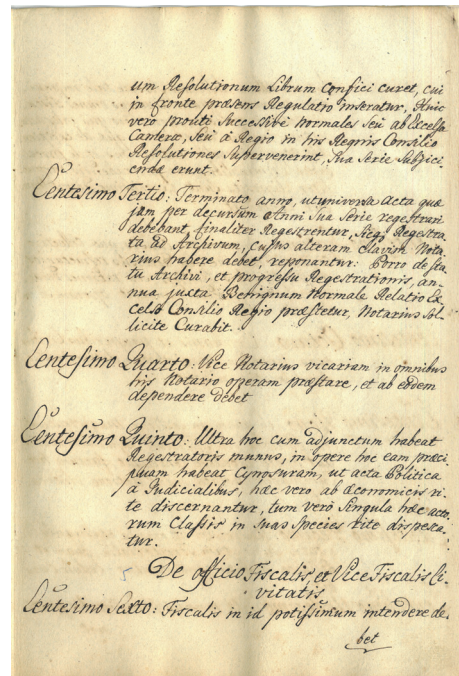 um Resolutionum Librum confici curet, cui
in fronte præsens Regulatio inseratur, Huic
vero prouti successive Normales seu ab Excelsa
Camera, seu à Regio in his Regnis Consilio
Resolutiones supervenerint, sua serie subjici-
endæ erunt.
Centesimo Tertio: Terminato anno, ut universa acta quæ
jam per decursum Anni sua serie regestrari
debebant, finaliter Regestrentur, sicq Regestra-
ta ad Archivum, cujus alteram clavim Nota-
rius habere debet, reponantur: Porro de sta-
tu Archivi, et progressu Regestrationis, an-
nua juxta Benignum Normale Relatio Ex-
celso Consilio Regio præstetur, Notarius sol-
licite Curabit.
Centesimo Quarto: Vice Notarius vicariam in omnibus
his Notario operam præstare, et ab eodem
dependere debet
Centesimo Quinto: Ultra hoc cum adjunctum habeat
Regestratoris munus, in opere hoc eam præci-
puam habeat Cynosuram, ut acta Politica
à Judicialibus, hæc vero ab æconomicis ri-
te discernantur, tum verò singula hæc acto-
rum Classis in suas species rite dispesca-
tur.
De officio Fiscalis et Vice Fiscalis Ci-
vitatis
Centesimo Sexto: Fiscalis in id potissimum intendere de-
bet